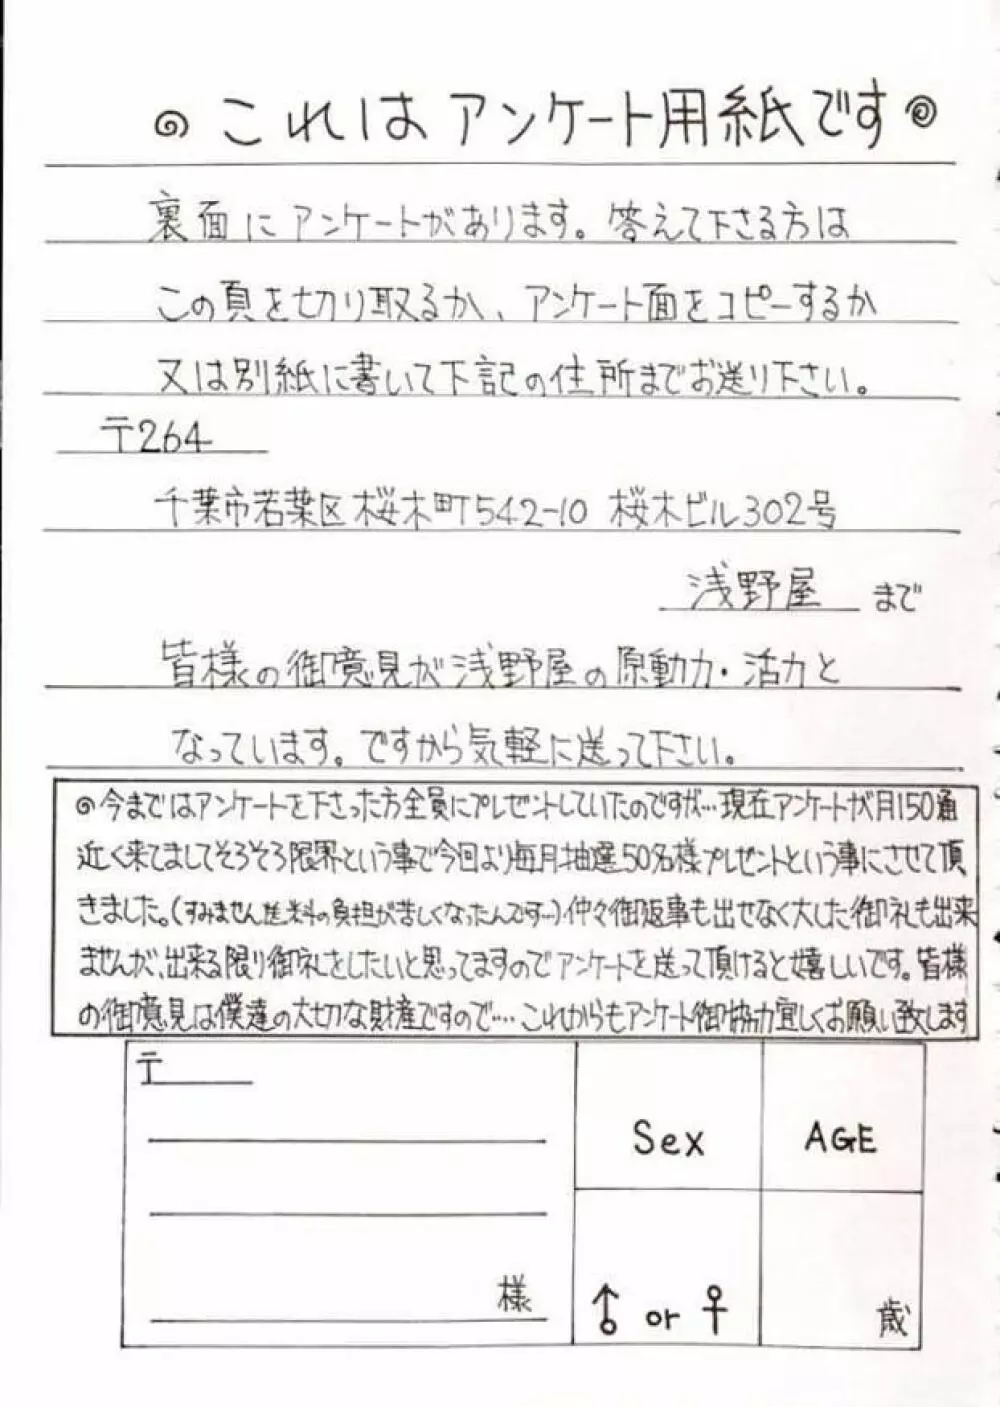 これはアンケート用紙です
裏面にアンケートがあります。答えて下さる方は
この頁を切り取るか、アンケート面をコピーするか
又は別紙に書いて下記の住所までお送り下さい。
〒264
千葉市若葉区桜木町542-10 桜木ビル302号
浅野屋 まで
皆様の御意見が浅野屋の原動力・活力と
なっています。ですから気軽に送って下さい。
◎今まではアンケートを下さった方全員にプレゼントしていたのですが…現在アンケートが月150通
近く来てましてそろそろ限界という事で今回より毎月抽選50名様プレゼントという事にさせて頂
きました。(すみません送料の負担が苦しくなったんです…)仲々御返事も出せなく大した御礼も出来
ませんが、出来る限り御礼をしたいと思ってますのでアンケートを送って頂けると嬉しいです。皆様
の御意見は僕達の大切な財産ですので…. これからもアンケート御協力宜しくお願い致します
〒
Sex AGE
様
♂ or ♀
歳